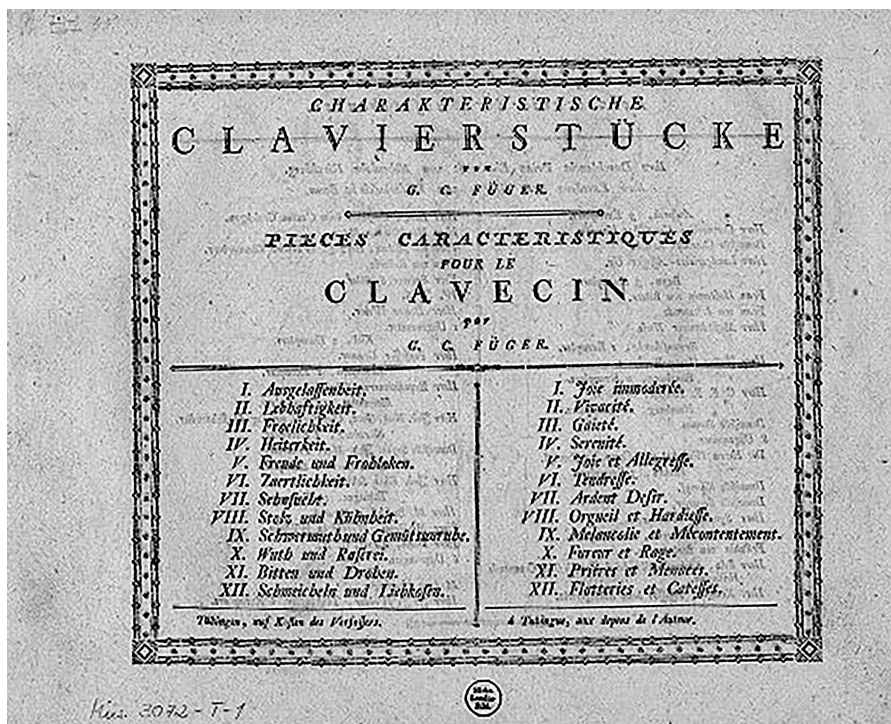 CHARAKTERISTISCHE
CLAVIERSTÜCKE
von
G. C. FÜGER.
PIECES CARACTERISTIQUES
POUR LE
CLAVECIN
par
G. C. FÜGER.
I. Ausgelassenheit.
II. Lebhaftigkeit.
III. Froelichkeit.
IV. Heiterkeit.
V. Freude und Frohloken.
VI. Zaertlichkeit.
VII. Sehnsucht.
VIII. Stolz und Kühnheit.
IX. Schwermuth und Gemütsunruhe.
X. Wuth und Raserei.
XI. Bitten und Drohen.
XII. Schmeicheln und Liebkosen.
Tübingen, auf Kosten des Verfassers.
I. Joie immoderée.
II. Vivacité.
III. Gaieté.
IV. Serenité.
V. Joie et Allegresse.
VI. Tendresse.
VII. Ardent Desir.
VIII. Orgueil et Hardiesse.
IX. Melancolie et Mecontentement.
X. Fureur et Rage.
XI. Prières et Menaces.
XII. Flatteries et Caresses.
à Tubingue, aux depens de l'Auteur.
Mus. 3072-T-1